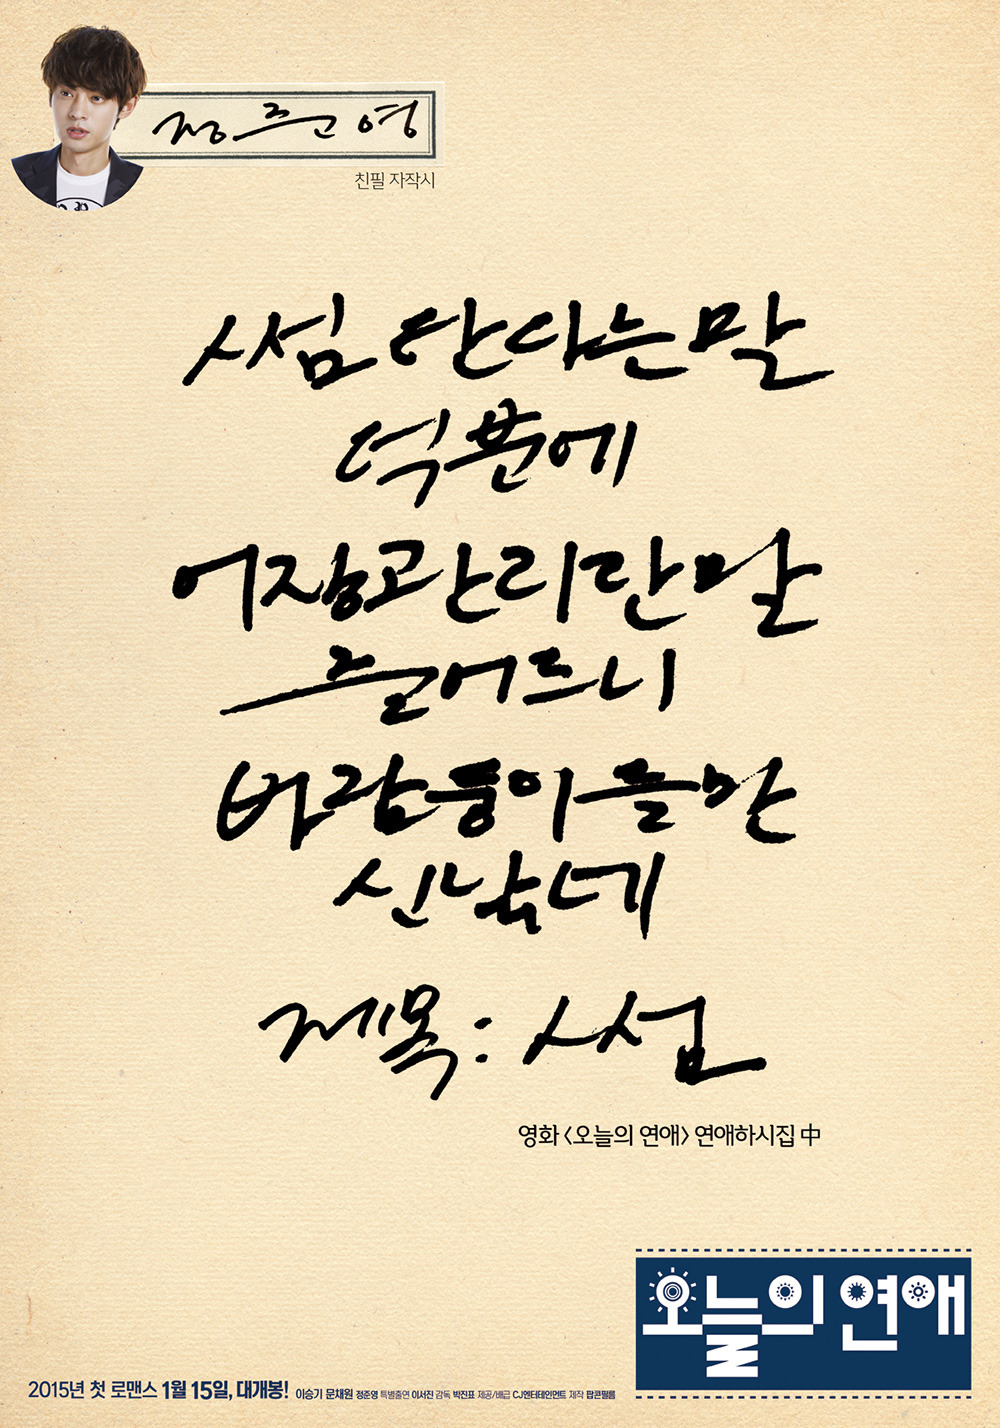 정준영
친필 자작시
썸 탄다는 말
덕분에
어장관리란 말
줄어드니
바람둥이들만
신났네
제목 : 썸
영화 <오늘의 연애> 연애하시집 中
오늘의 연애
2015년 첫 로맨스 1월 15일, 대개봉! 이승기 문채원 정준영 특별출연 이서진 감독 박진표 제공/배급 CJ엔터테인먼트 제작 팝콘필름